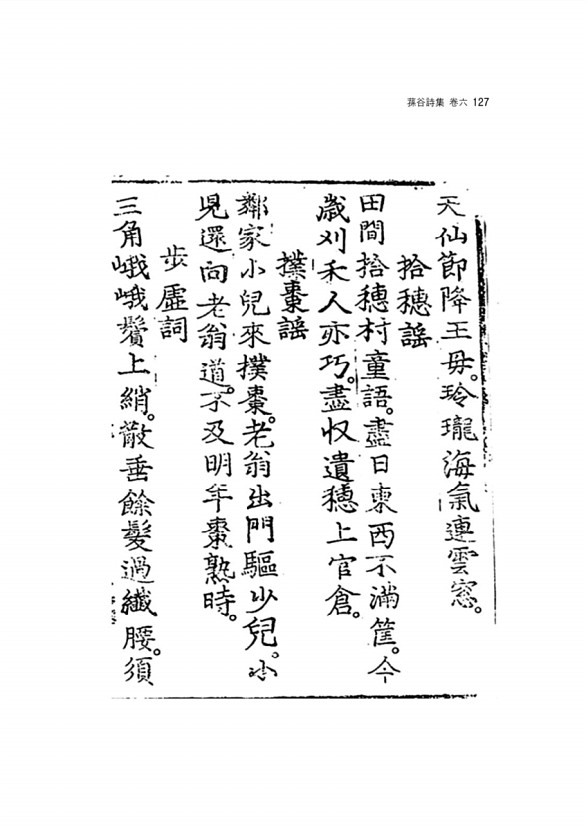 蓀谷詩集 卷六 127
天仙節降王母。玲瓏海氣連雲窓。
拾穗謠
田間拾穗村童語。盡日東西不滿筐。今
歲刈禾人亦巧。盡收遺穗上官倉。
撲棗謠
鄰家小兒來撲棗。老翁出門驅少兒。小
兒還向老翁道。不及明年棗熟時。
步虛詞
三角峨峨鬢上綃。散垂餘髮過纖腰。須